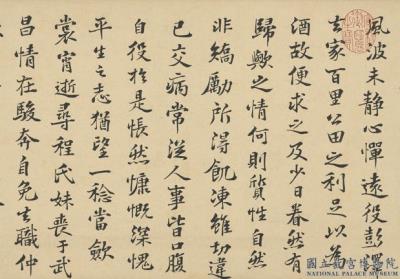 風波未静心憚遠役彭澤
去家百里公田之利足以為
酒故便求之及少日眷然有
歸歟之情何則質性自然
非矯勵所得飢凍雖切違
已交病常從人事皆口腹
自役於是悵然慷慨深愧
平生之志猶望一稔當歛
裳宵逝尋程氏妹喪于武
昌情在駿奔自免去職仲
國立故宮博物院
NATIONAL PALACE MUSEUM